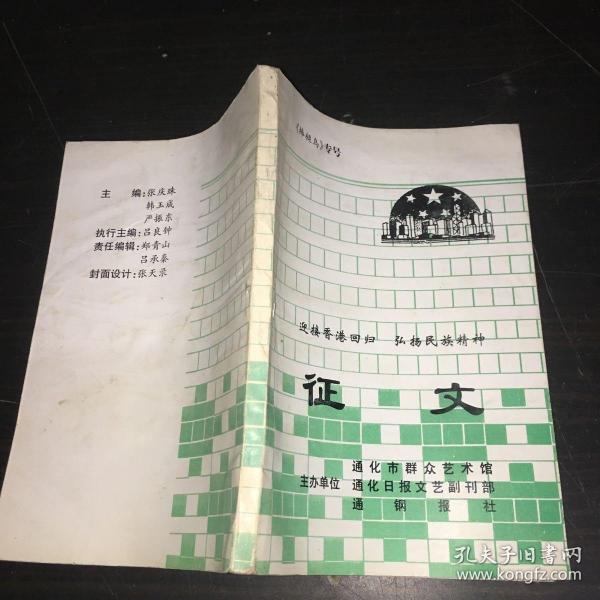 主 编:张庆珠
韩玉成
严振东
执行主编:吕良钟
责任编辑:郑青山
吕承秦
封面设计:张天录
专号
迎接香港回归 弘扬民族精神
征文
通化市群众艺术馆
主办单位 通化日报文艺副刊部
通钢报社
孔夫子旧书网
www.kongfz.com